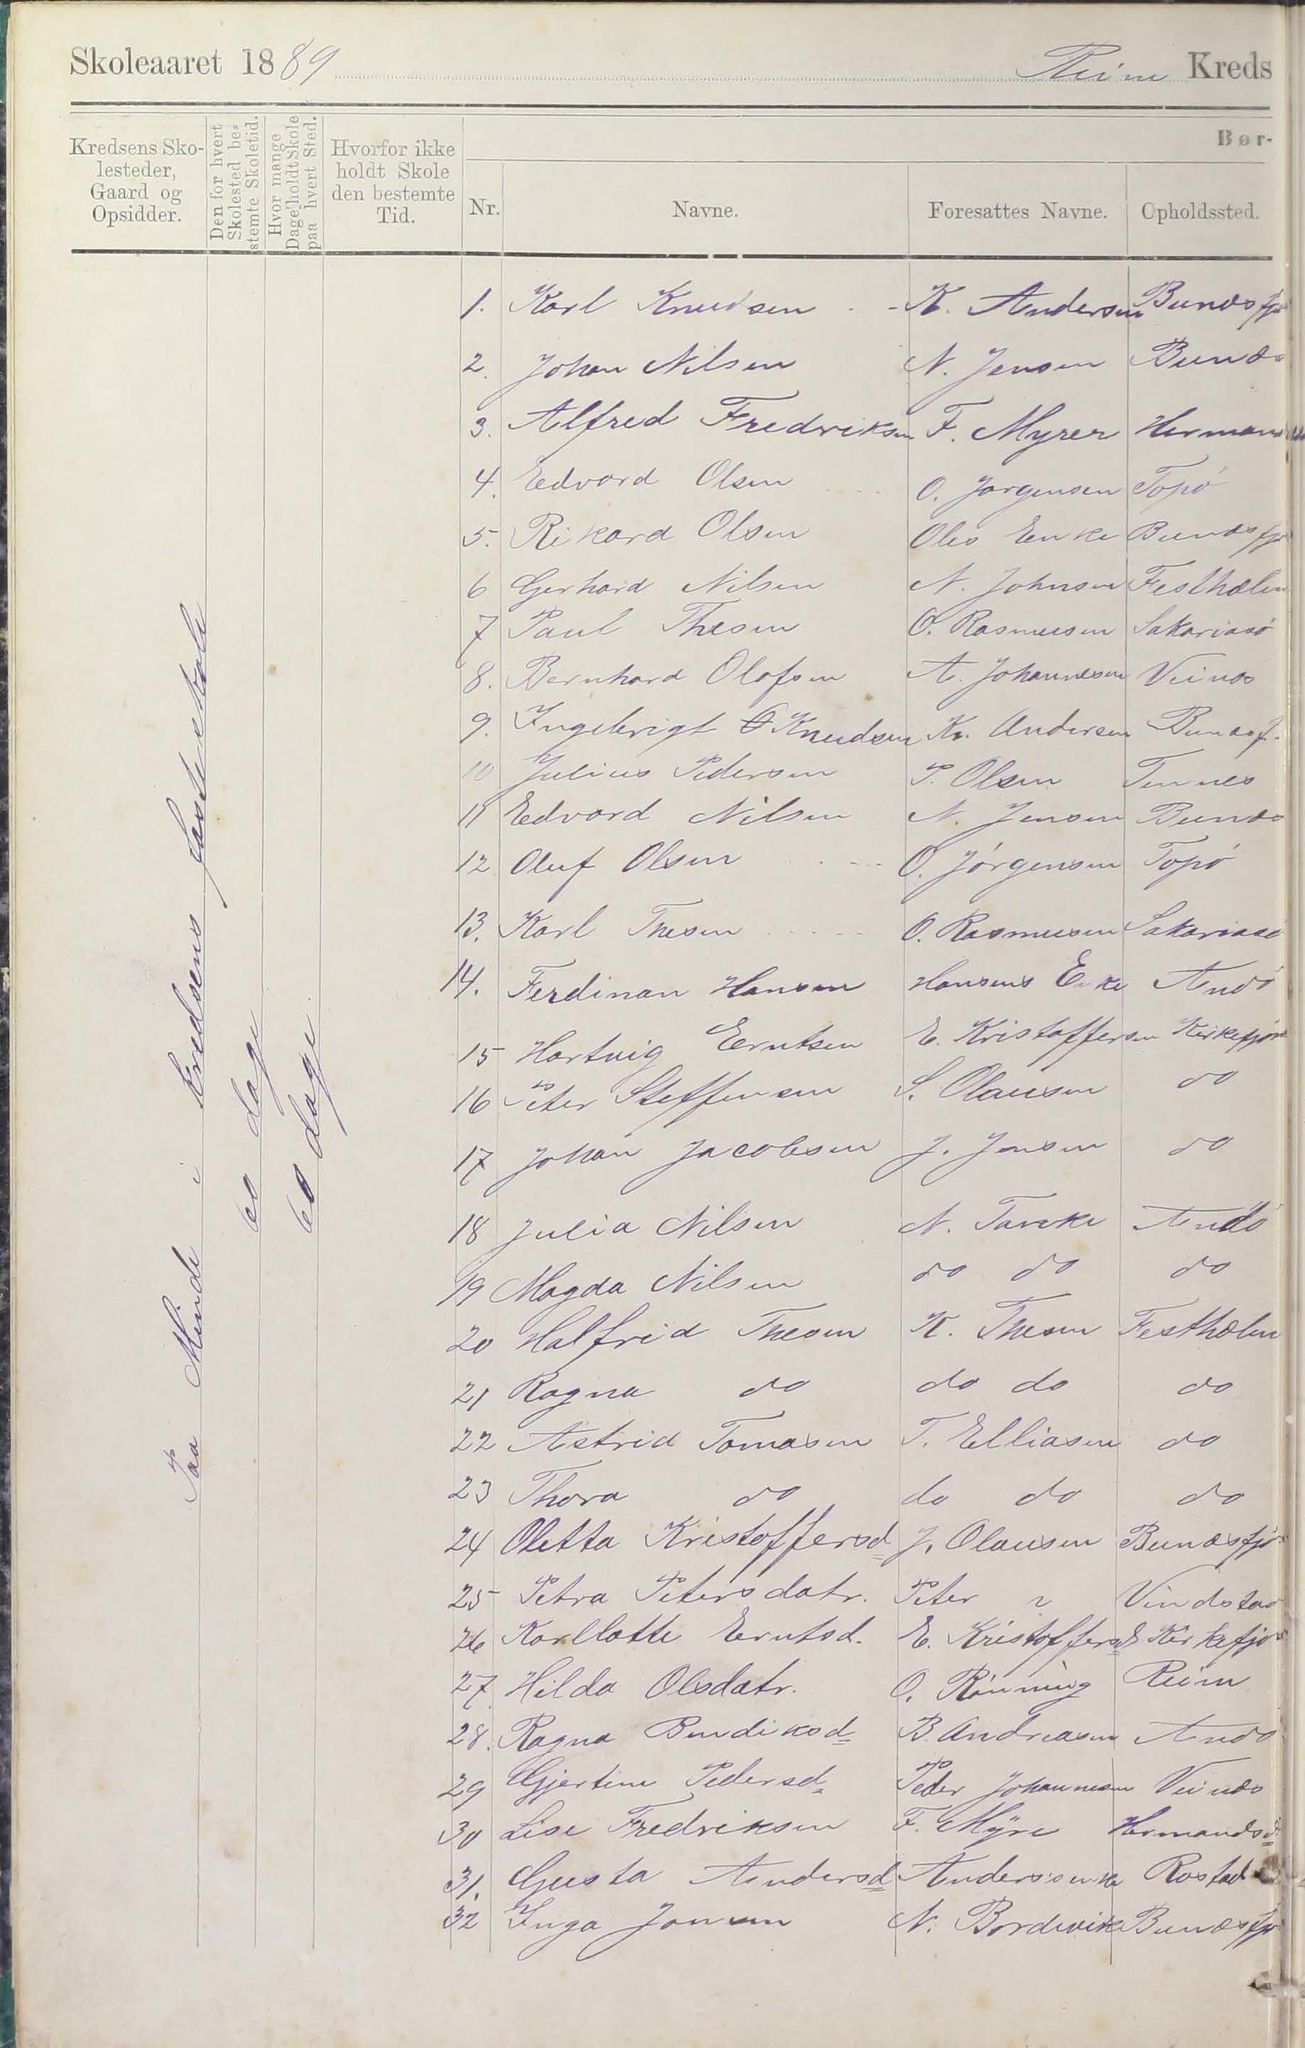 Skoleaaret 1889 Reine Kreds
Bør-
Kredsens Sko-
lesteder,
Gaard og
Opsidder.
Den for hvert
Skolested be-
stemte Skoletid.
Hvor mange
Dage holdt Skole
paa hvert Sted.
Hvorfor ikke
holdt Skole
den bestemte
Tid.
Nr. Navne. Foresattes Navne. Opholdssted.
Paa Minde i Kredsens
60 dage
60 dage
1. Karl Knudsen K. Andersen Bundsfj
2. Johan Nilsen N. Jensen Bunds
3. Alfred Fredriksen F. Myrer Herman
4. Edvard Olsen O. Jørgensen Topø
5. Rikard Olsen Oles Enke Bundsfj
6 Gerhard Nilsen N. Johnsen Festhælen
7 Paul Thesen O. Rasmusen Sakariasø
8. Bernhard Olafsen A. Johannesen Veines
9. Ingebrigt Knudsen Kn. Andersen Bundsf.
10 Julius Pedersen P. Olsen Tennes
11 Edvard Nilsen N. Jensen Bunds
12 Oluf Olsen O. Jørgensen Topø
13. Karl Thesen O. Rasmusen Sakariasø
14. Ferdinan Hansen Hansens Enke Andø
15 Hartvig Erntsen E. Kristoffersen Kirkefjor
16 Peter Steffensen S. Olausen do
17 Johan Jacobsen J. Jensen do
18 Julia Nilsen N. Andø
19 Magda Nilsen do do do
20 Halfrid Thesen K. Thesen Festhælen
21 Ragna do do do do
22 Astrid Tomasen T. Elliasen do
23 Thora do do do do
24 Oletta Kristoffersd J. Olausen Bundsfjo
25 Petra Petersdatr. Peter " Vindstad
26 Karllotte Erntsd. E. Kristoffers Kirkefjor
27 Hilda Olsdatr. O. Rönning Reine
28. Ragna Bendiksd B. Andreasen Andø
29 Gjertine Pedersd Peder Johannesen Veines
30 Lise Fredriksen F. Myre Hermandsd
31. Gusta Andersd Andersenke Rostad
32 Inga Jensen N. Bordevik Bundsfjo